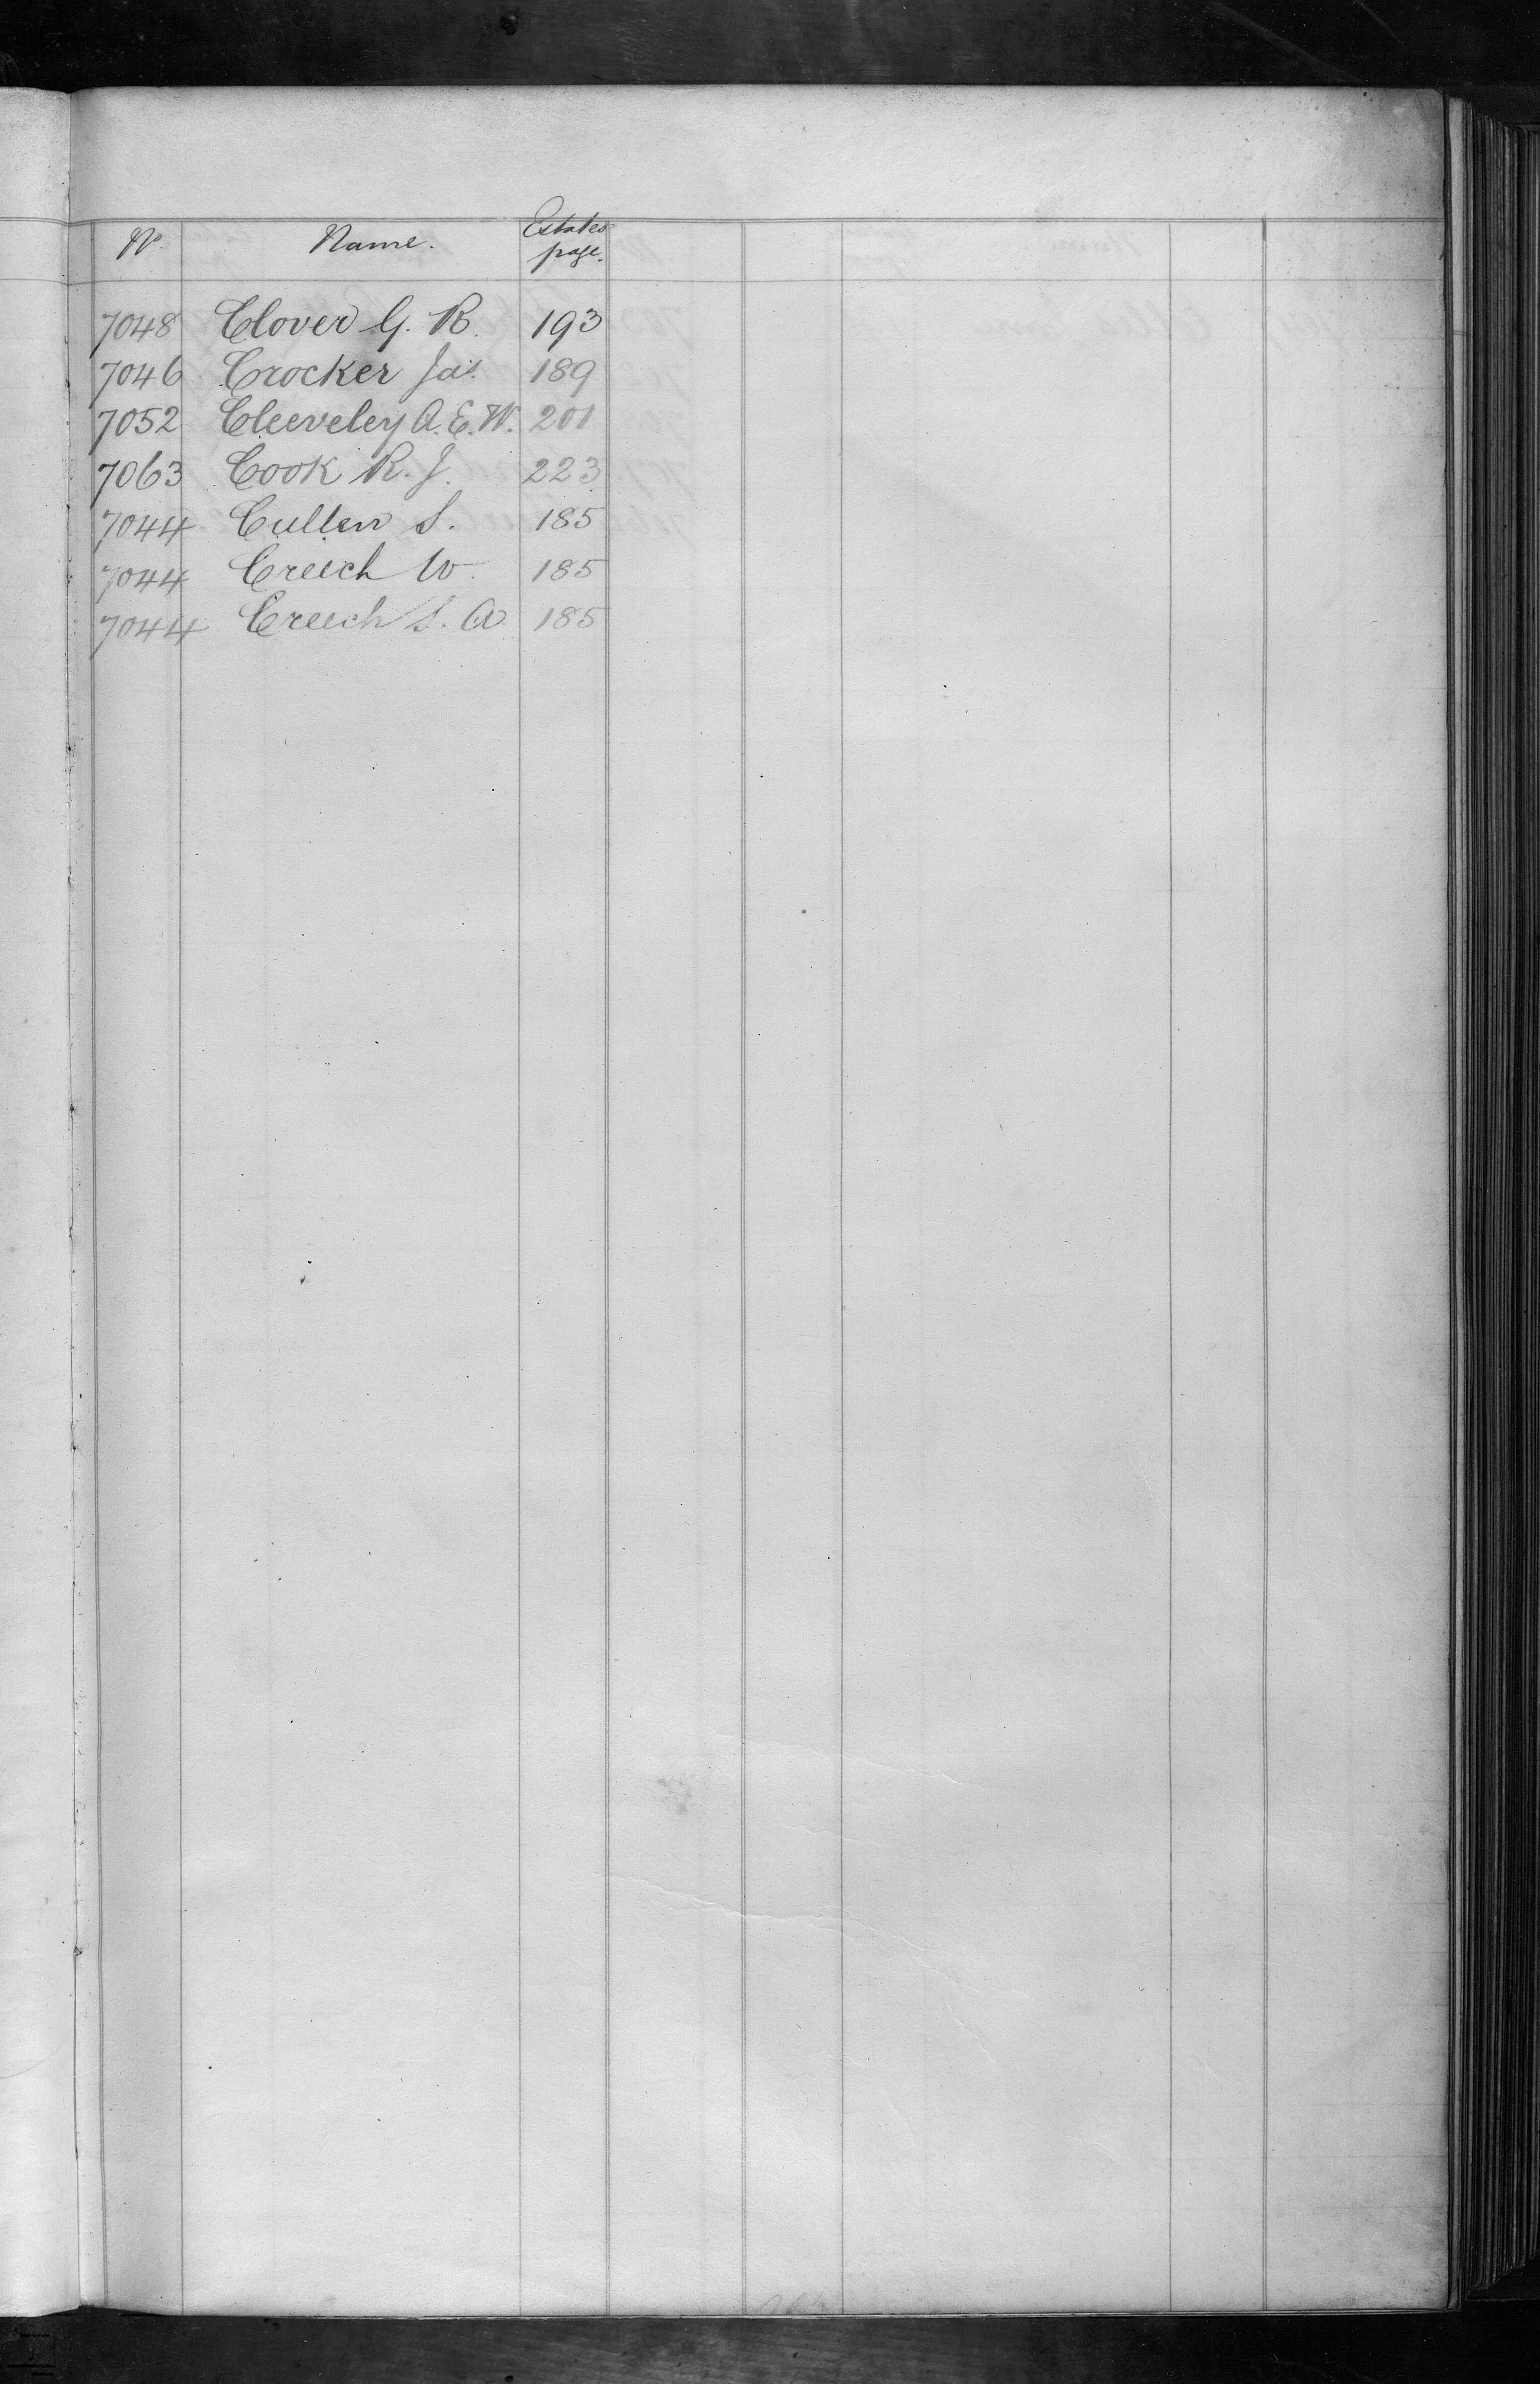 No. Name. Estates page.
7048 Clover G. R. 193
7046 Crocker Jas. 189
7052 Cleeveley A. E. W. 201
7063 Cook R. J. 223
7044 Cullen S. 185
7044 Creech W. 185
7044 Creech S. A. 185